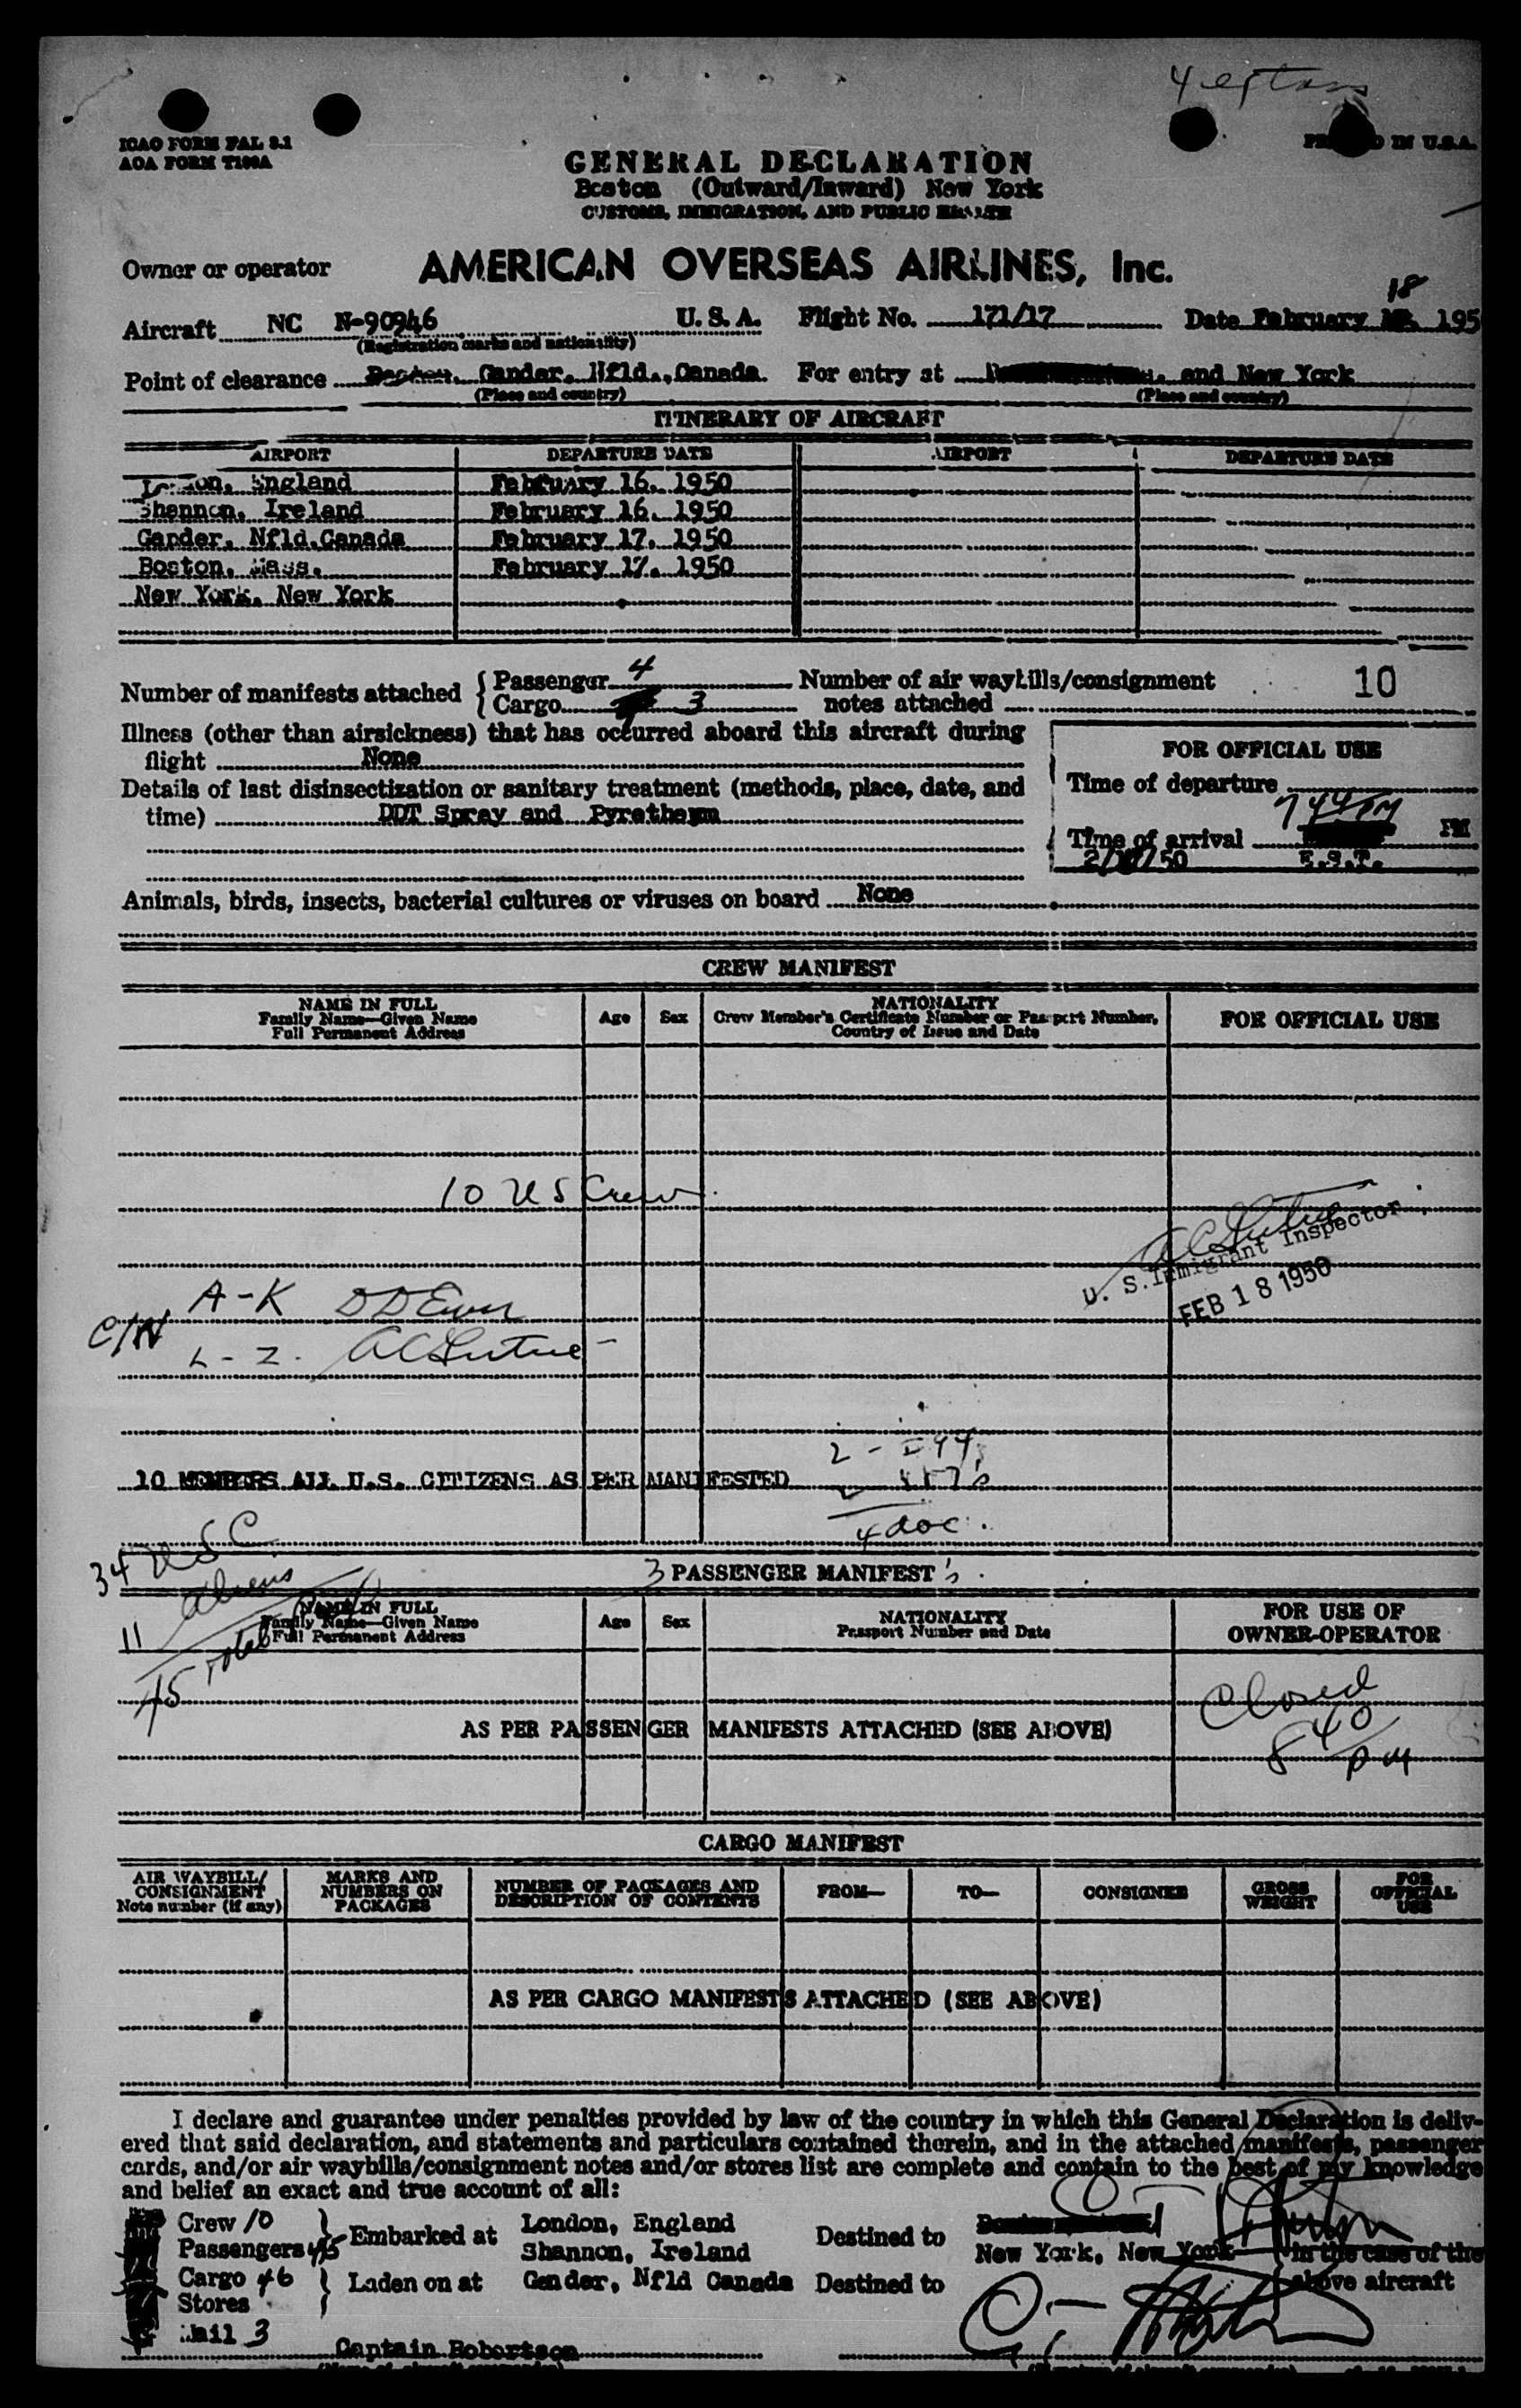 ICAO FORM FAL 2.1
AOA FORM T100A
IN U.S.A.
GENERAL DECLARATION
Boston (Outward/Inward) New York
CUSTOMS, IMMIGRATION, AND PUBLIC HEALTH
Owner or operator AMERICAN OVERSEAS AIRLINES, Inc.
18
Aircraft NC N-90946 U. S. A. Flight No. 171/17 Date February 195
(Registration marks and nationality)
Point of clearance Gander, Nfld., Canada For entry at and New York
(Place and country) (Place and country)
ITINERARY OF AIRCRAFT
AIRPORT DEPARTURE DATE AIRPORT DEPARTURE DATE
London, England February 16, 1950
Shannon, Ireland February 16, 1950
Gander, Nfld.Canada February 17, 1950
Boston, Mass. February 17, 1950
New York, New York
Number of manifests attached { Passenger 4 Number of air waybills/consignment 10
Cargo 3 notes attached
Illness (other than airsickness) that has occurred aboard this aircraft during
flight None
Details of last disinsectization or sanitary treatment (methods, place, date, and
time) DDT Spray and Pyretheym
FOR OFFICIAL USE
Time of departure
744 PM
Time of arrival PM
E.S.T.
Animals, birds, insects, bacterial cultures or viruses on board None
CREW MANIFEST
NAME IN FULL
Family Name—Given Name
Full Permanent Address
Age
Sex
NATIONALITY
Crew Member's Certificate Number or Passport Number,
Country of Issue and Date
FOR OFFICIAL USE
10 US Crew
U. S. Immigrant Inspector
FEB 18 1950
A-K
L-Z.
10 MEMBERS ALL U.S. CITIZENS AS PER MANIFESTED
4 doc.
34 USC
11 Aliens
45 Total
3 PASSENGER MANIFEST's
NAME IN FULL
Family Name—Given Name
Full Permanent Address
Age
Sex
NATIONALITY
Passport Number and Date
FOR USE OF
OWNER-OPERATOR
Closed
8 40 PM
AS PER PASSENGER MANIFESTS ATTACHED (SEE ABOVE)
CARGO MANIFEST
AIR WAYBILL/
CONSIGNMENT
Note number (if any)
MARKS AND
NUMBERS ON
PACKAGES
NUMBER OF PACKAGES AND
DESCRIPTION OF CONTENTS
FROM—
TO—
CONSIGNEE
GROSS
WEIGHT
FOR
OFFICIAL
USE
AS PER CARGO MANIFESTS ATTACHED (SEE ABOVE)
I declare and guarantee under penalties provided by law of the country in which this General Declaration is deliv-
ered that said declaration, and statements and particulars contained therein, and in the attached manifests, passenger
cards, and/or air waybills/consignment notes and/or stores list are complete and contain to the best of my knowledge
and belief an exact and true account of all:
Crew 10
Passengers 45 } Embarked at London, England
Shannon, Ireland Destined to New York, New York in the case of the
Cargo 46
Stores } Laden on at Gander, Nfld Canada Destined to above aircraft
Mail 3
Captain Robertson